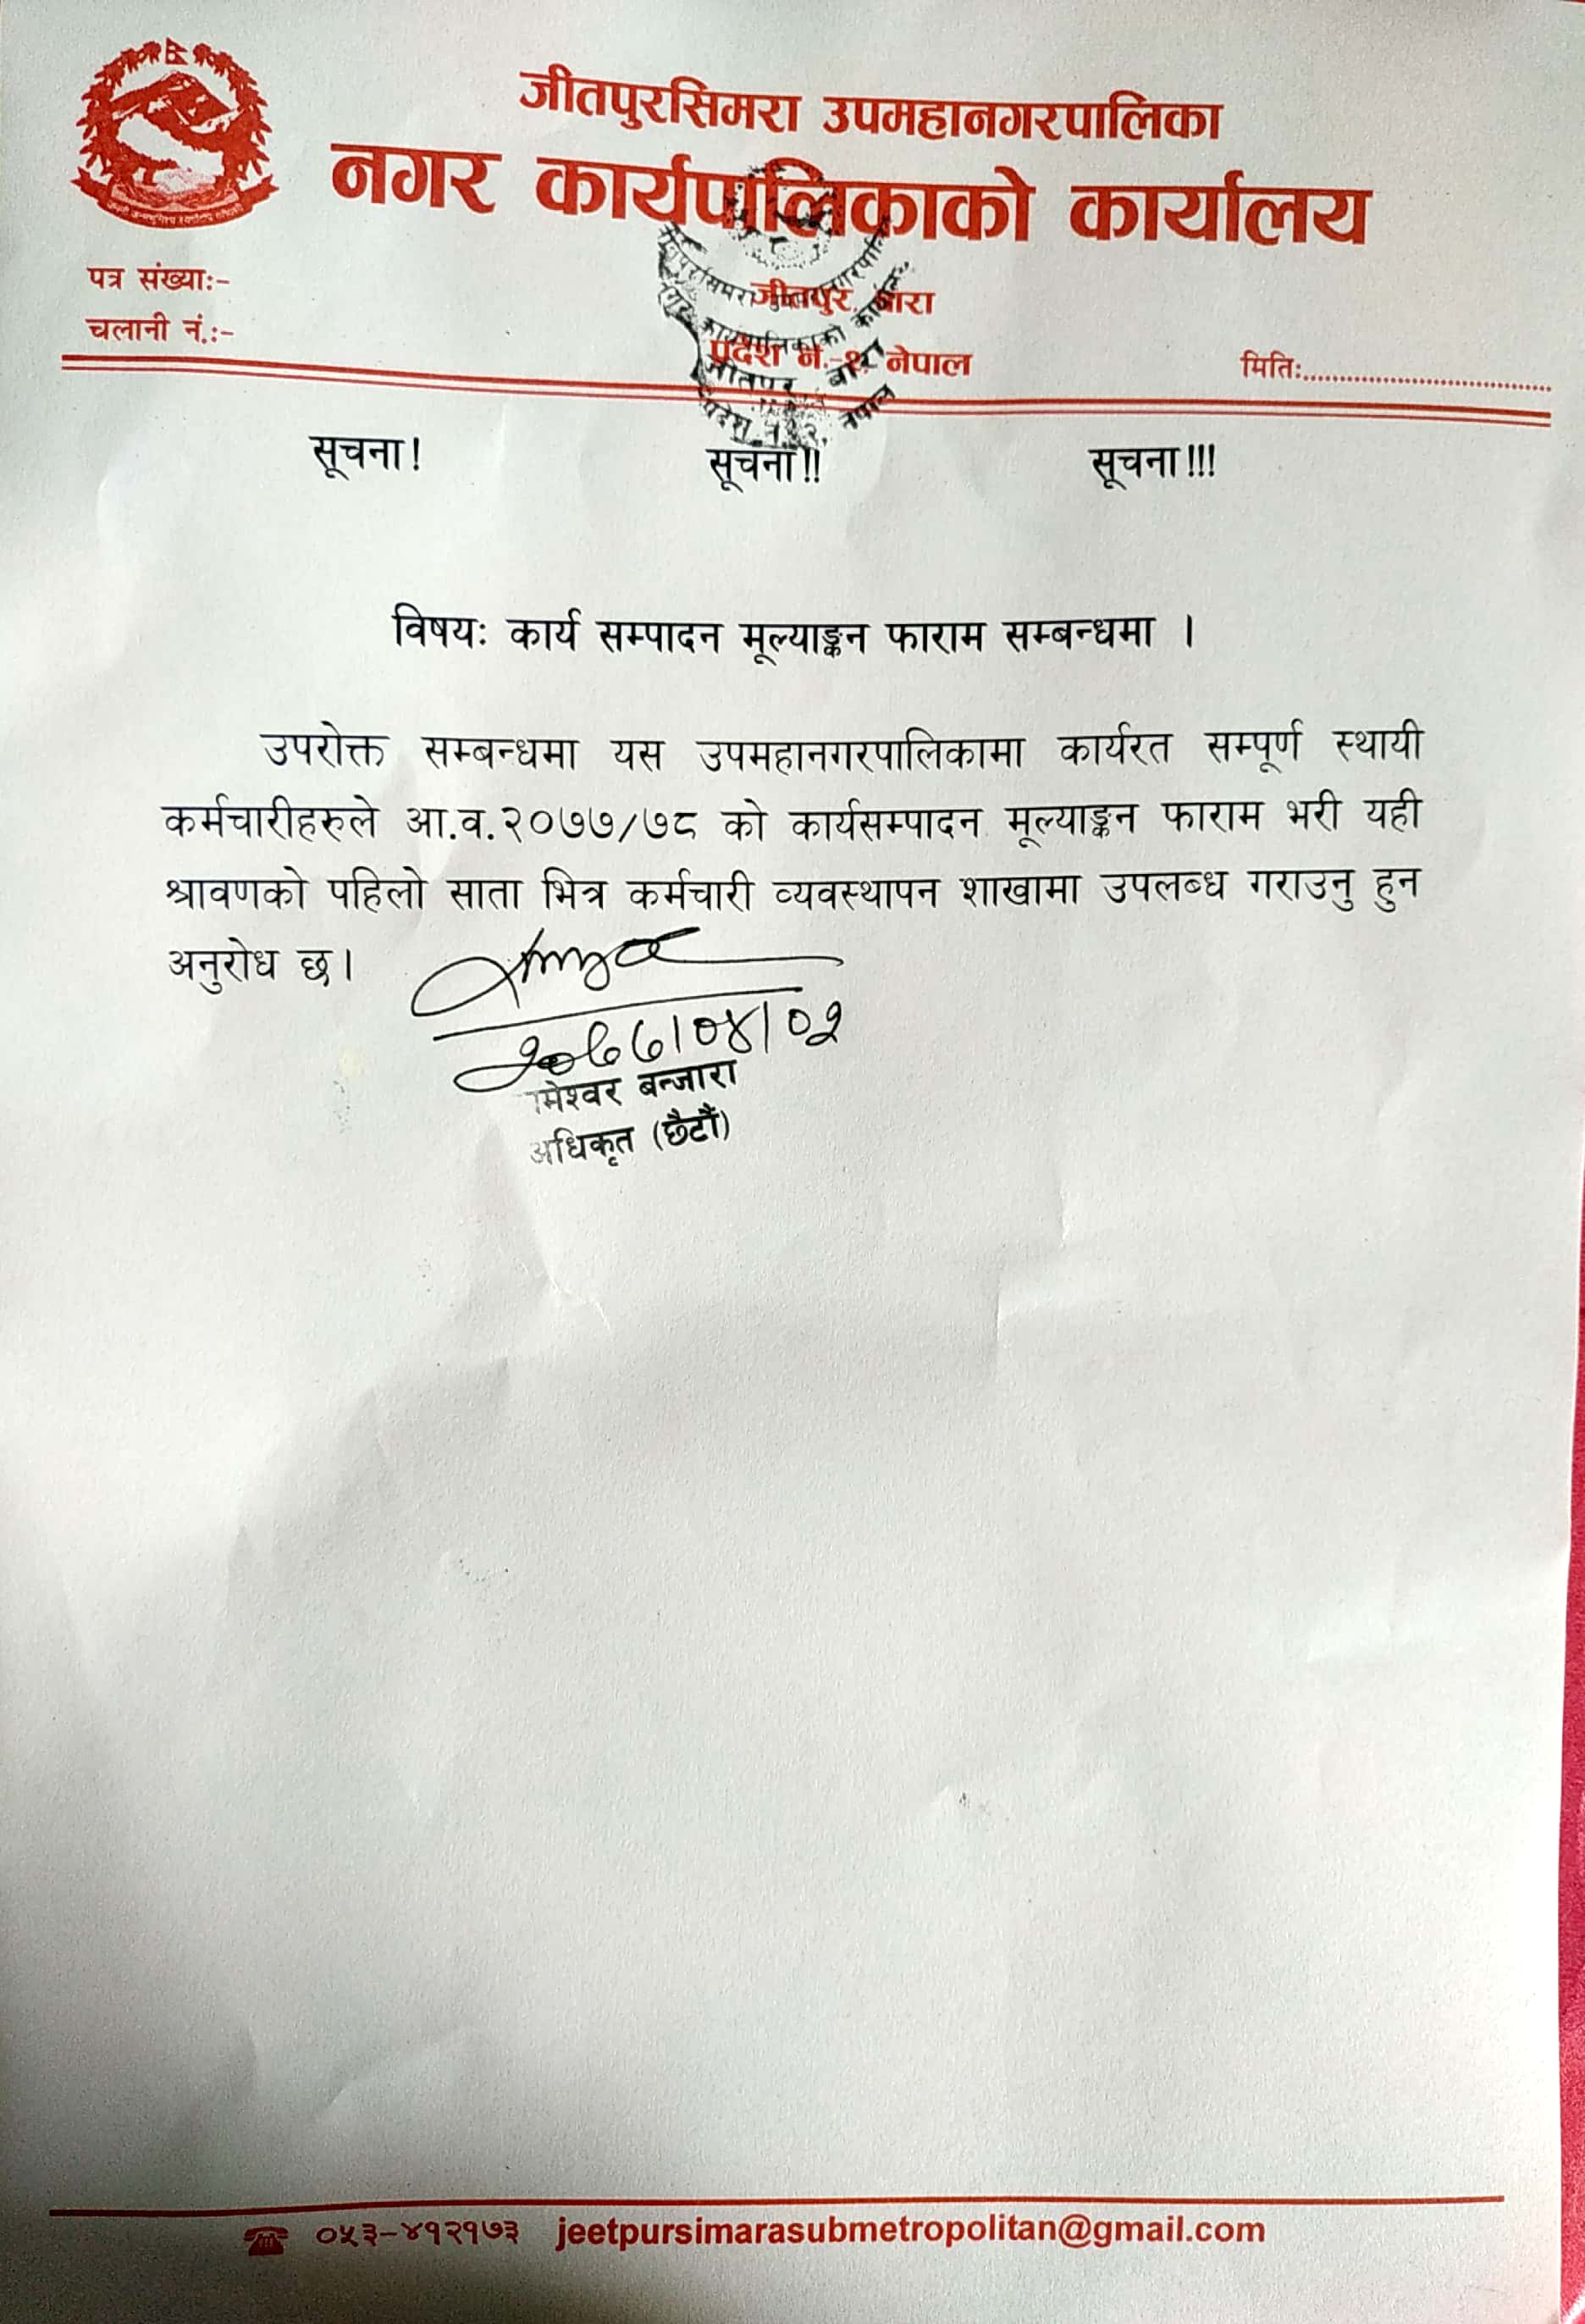 जीतपुरसिमरा उपमहानगरपालिका
नगर कार्यपालिकाको कार्यालय
जीतपुर, बारा
पत्र संख्याः-
चलानी नं.:-
प्रदेश नं.-२, नेपाल
मितिः
सूचना! सूचना!! सूचना!!!
विषयः कार्य सम्पादन मूल्याङ्कन फाराम सम्बन्धमा ।
उपरोक्त सम्बन्धमा यस उपमहानगरपालिकामा कार्यरत सम्पूर्ण स्थायी
कर्मचारीहरुले आ.व.२०७७/७८ को कार्यसम्पादन मूल्याङ्कन फाराम भरी यही
श्रावणको पहिलो साता भित्र कर्मचारी व्यवस्थापन शाखामा उपलब्ध गराउनु हुन
अनुरोध छ।
बन्जारा
अधिकृत (छैटौं)
०५३-४१२१७३ jeetpursimarasubmetropolitan@gmail.com